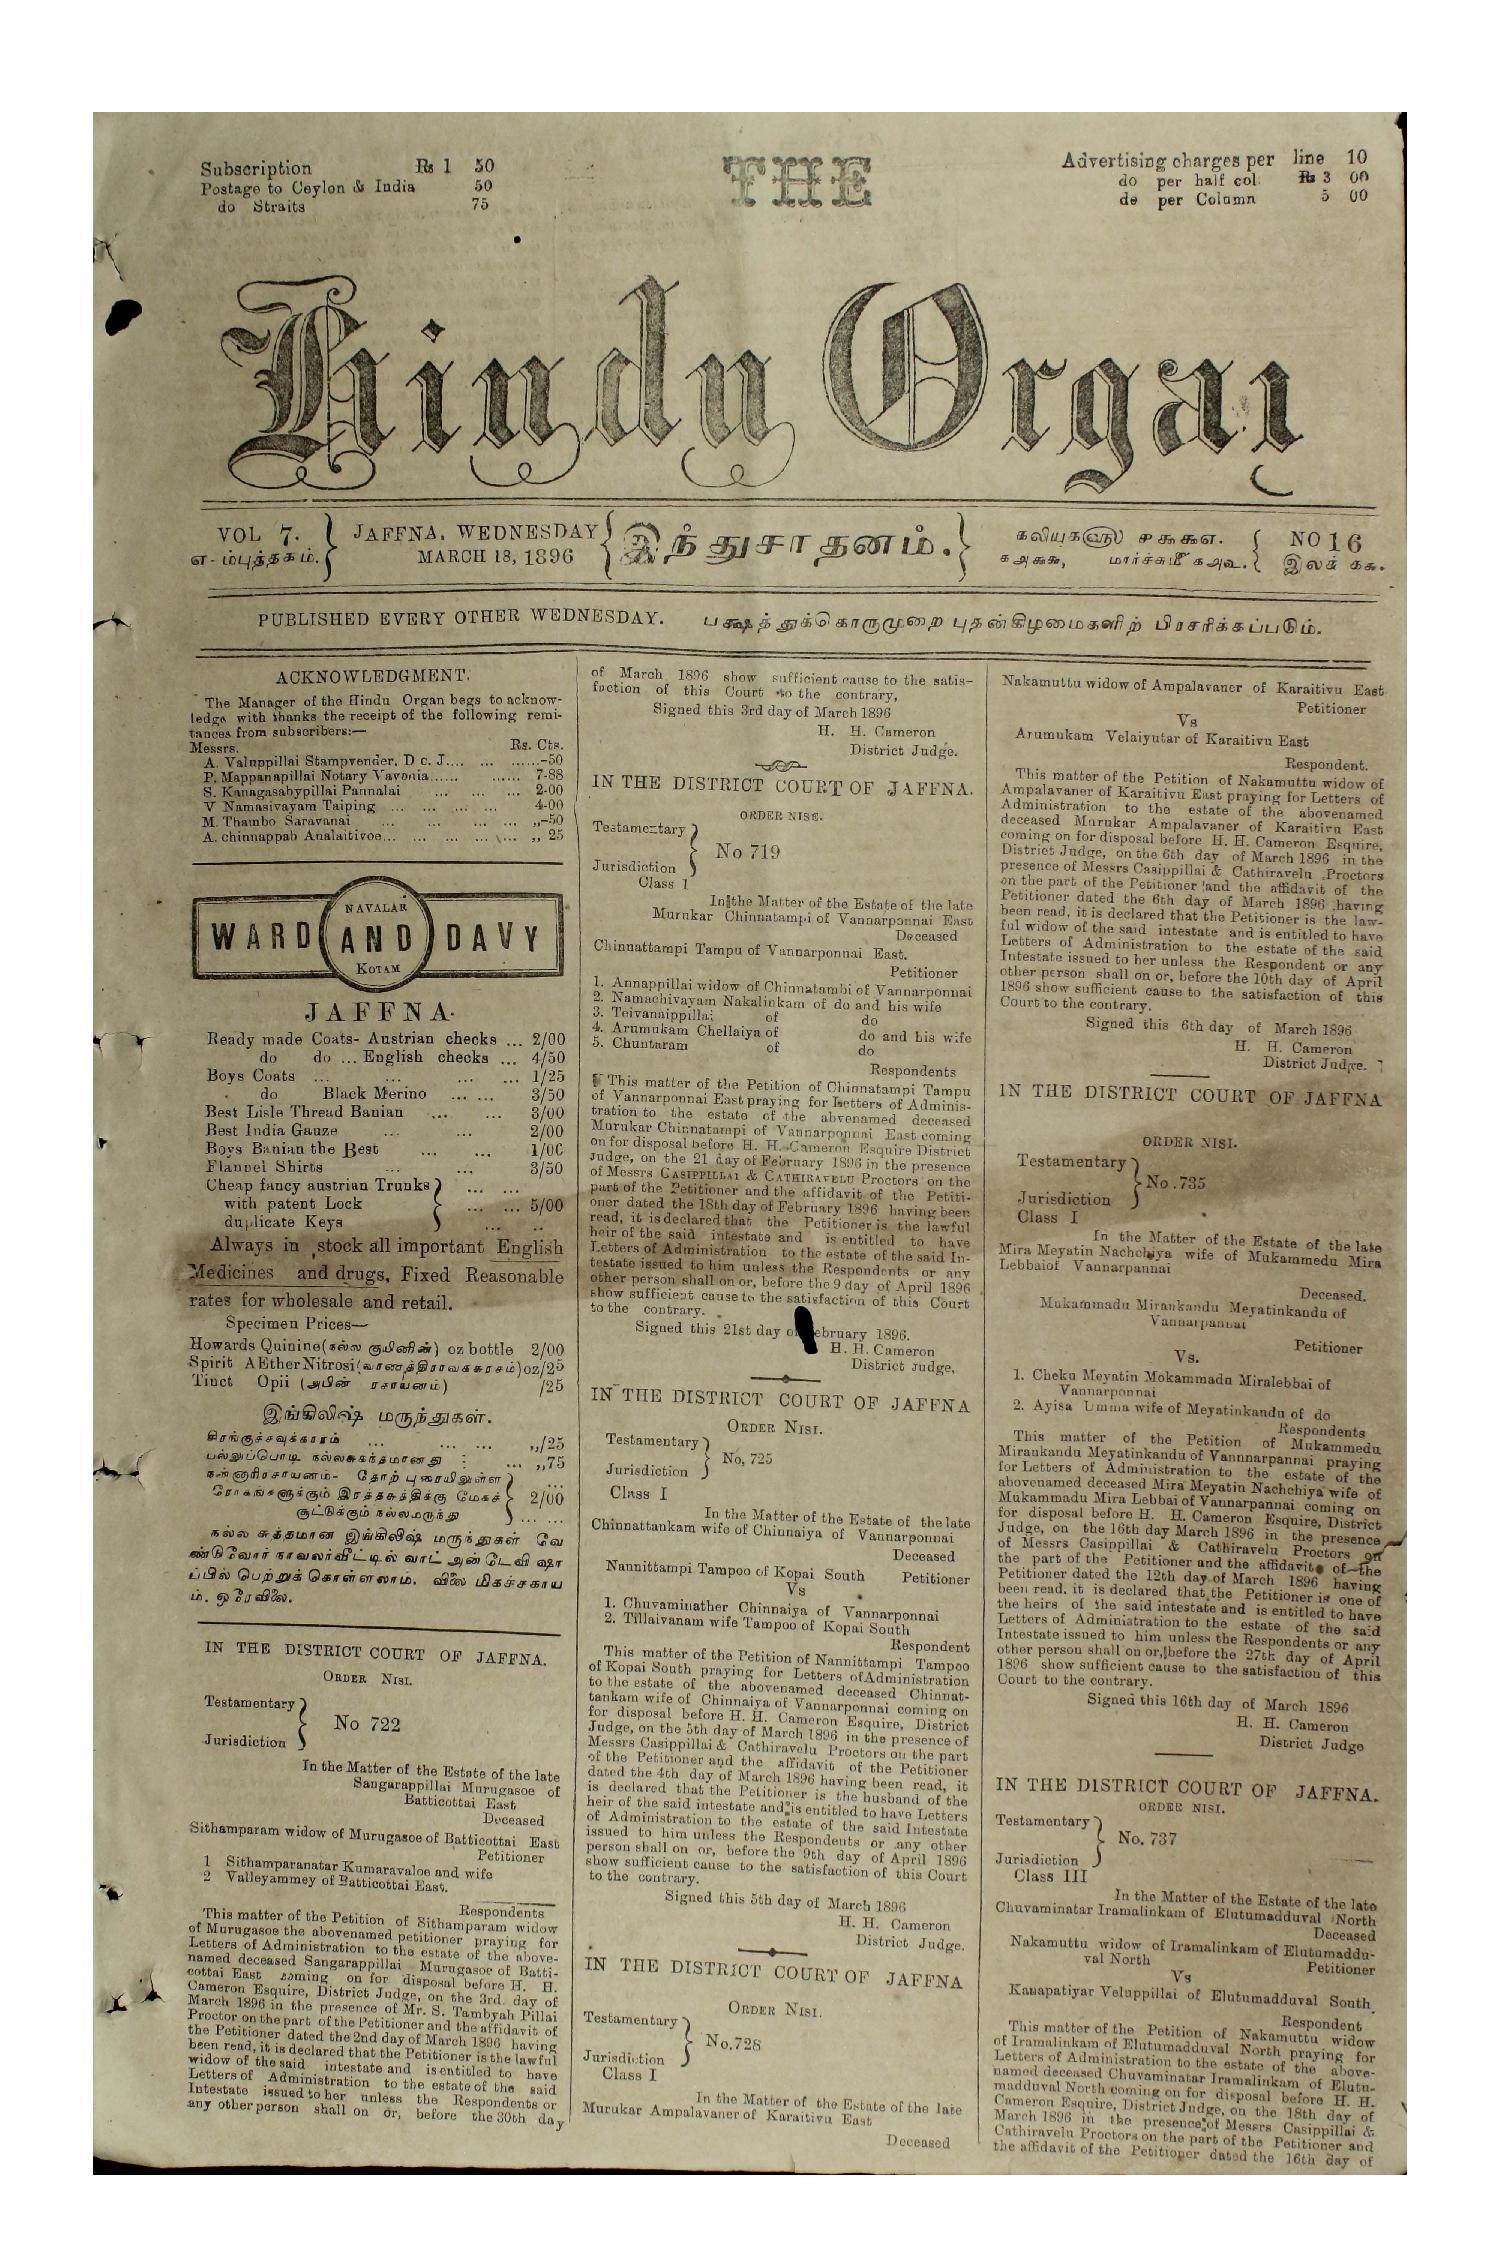 Subscription Rs 1 50
Postage to Ceylon & India 50
do Straits 75
THE
Advertising charges per line 10
do per half col. Rs 3 00
do per Column 5 00
Hindu Organ
VOL 7.
எ-ம்புத்தகம்.
JAFFNA, WEDNESDAY
MARCH 18, 1896
இந்துசாதனம்.
கலியுகஸ்ரீ ௪௯௯௭.
௧௮௯௬, மார்ச்சுமீ ௧௮உ.
NO 16
இலக் ௧௬.
PUBLISHED EVERY OTHER WEDNESDAY. பக்ஷத்துக்கொருமுறை புதன்கிழமைகளிற் பிரசரிக்கப்படும்.
ACKNOWLEDGMENT.
The Manager of the Hindu Organ begs to acknow-
ledge with thanks the receipt of the following remi-
tances from subscribers:—
Messrs. Rs. Cts.
A. Valuppillai Stampvender, D c. J.... ... ......-50
P. Mappanapillai Notary Vavonia...... ...... 7-88
S. Kanagasabypillai Pannalai ... ... ... 2-00
V Namasivayam Taiping ... ... ... ... 4-00
M. Thambo Saravanai ... ... ... ... „-50
A. chinnappah Analaitivoe... ... ... ... ... „ 25
WARD AND DAVY
NAVALAR
KOTAM
JAFFNA.
Ready made Coats- Austrian checks ... 2/00
do do ... English checks ... 4/50
Boys Coats ... ... ... ... 1/25
do Black Merino ... ... 3/50
Best Lisle Thread Banian ... ... 3/00
Best India Gauze ... ... 2/00
Boys Banian the Best ... ... 1/00
Flannel Shirts ... ... 3/50
Cheap fancy austrian Trunks ... ...
with patent Lock ... ... 5/00
duplicate Keys ... ..
Always in stock all important English
Medicines and drugs, Fixed Reasonable
rates for wholesale and retail.
Specimen Prices—
Howards Quinine(நல்ல குயினின்) oz bottle 2/00
Spirit AEther Nitrosi(வாணத்திராவகசுரசம்)oz/25
Tinct Opii (அபின் ரசாயனம்) /25
இங்கிலிஷ் மருந்துகள்.
சிரங்குச்சவுக்காரம் ... ... ... „/25
பல்லுப்பொடி நல்லசுகந்தமானது : ... „75
நன்னாரிரசாயனம்- தோற் புரையிலுள்ள ...
ரோகங்களுக்கும் இரத்தசுத்திக்கு மேகச் 2/00
சூட்டுக்கும் நல்லமருந்து ... ...
நல்ல சுத்தமான இங்கிலிஷ் மருந்துகள் வே
ண்டுவோர் நாவலர்வீட்டில் வாட் அன் டேவி ஷா
ப்பில் பெற்றுக் கொள்ளலாம். விலை மிகச்சகாய
ம். ஒரேவிலை.
IN THE DISTRICT COURT OF JAFFNA.
ORDER NISI.
Testamentary
No 722
Jurisdiction
In the Matter of the Estate of the late
Sangarappillai Murugasoe of
Batticottai East
Deceased
Sithamparam widow of Murugasoe of Batticottai East
Petitioner
1 Sithamparanatar Kumaravaloe and wife
2 Valleyammey of Batticottai East.
Respondents
This matter of the Petition of Sithamparam widow
of Murugasoe the abovenamed petitioner praying for
Letters of Administration to the estate of the above-
named deceased Sangarappillai Murugasoe of Batti-
cottai East coming on for disposal before H. H.
Cameron Esquire, District Judge, on the 3rd. day of
March 1896 in the presence of Mr. S. Tambyah Pillai
Proctor on the part of the Petitioner and the affidavit of
the Petitioner dated the 2nd day of March 1896 having
been read, it is declared that the Petitioner is the lawful
widow of the said intestate and is entitled to have
Letters of Administration to the estate of the said
Intestate issued to her unless the Respondents or
any other person shall on or, before the 30th day
of March 1896 show sufficient cause to the satis-
faction of this Court to the contrary,
Signed this 3rd day of March 1896
H. H. Cameron
District Judge.
IN THE DISTRICT COURT OF JAFFNA.
ORDER NISI.
Testamentary
No 719
Jurisdiction
Class I
In the Matter of the Estate of the late
Murukar Chinnatampi of Vannarponnai East
Deceased
Chinnattampi Tampu of Vannarponnai East.
Petitioner
1. Annappillai widow of Chinnatambi of Vannarponnai
2. Namachivayam Nakalinkam of do and his wife
3. Teivannippillai of do
4. Arumukam Chellaiya of do and his wife
5. Chuntaram of do
Respondents
This matter of the Petition of Chinnatampi Tampu
of Vannarponnai East praying for Letters of Adminis-
tration to the estate of the abvenamed deceased
Murukar Chinnatampi of Vannarponnai East coming
on for disposal before H. H. Cameron Esquire District
Judge, on the 21 day of February 1896 in the presence
of Messrs CASIPPILLAI & CATHIRAVELU Proctors on the
part of the Petitioner and the affidavit of the Petiti-
oner dated the 18th day of February 1896 having been
read, it is declared that the Petitioner is the lawful
heir of the said intestate and is entitled to have
Letters of Administration to the estate of the said In-
testate issued to him unless the Respondents or any
other person shall on or, before the 9 day of April 1896
show sufficient cause to the satisfaction of this Court
to the contrary.
Signed this 21st day of February 1896.
H. H. Cameron
District Judge,
IN THE DISTRICT COURT OF JAFFNA
ORDER NISI.
Testamentary
No, 725
Jurisdiction
Class I
In the Matter of the Estate of the late
Chinnattankam wife of Chinnaiya of Vannarponnai
Deceased
Nannittampi Tampoo of Kopai South Petitioner
Vs
1. Chuvaminather Chinnaiya of Vannarponnai
2. Tillaivanam wife Tampoo of Kopai South
Respondent
This matter of the Petition of Nannittampi Tampoo
of Kopai South praying for Letters of Administration
to the estate of the abovenamed deceased Chinnat-
tankam wife of Chinnaiya of Vannarponnai coming on
for disposal before H. H. Cameron Esquire, District
Judge, on the 5th day of March 1896 in the presence of
Messrs Casippillai & Cathiravelu Proctors on the part
of the Petitioner and the affidavit of the Petitioner
dated the 4th day of March 1896 having been read, it
is declared that the Petitioner is the husband of the
heir of the said intestate and is entitled to have Letters
of Administration to the estate of the said Intestate
issued to him unless the Respondents or any other
person shall on or, before the 9th day of April 1896
show sufficient cause to the satisfaction of this Court
to the contrary.
Signed this 5th day of March 1896
H. H. Cameron
District Judge.
IN THE DISTRICT COURT OF JAFFNA
ORDER NISI.
Testamentary
No.728
Jurisdiction
Class I
In the Matter of the Estate of the late
Murukar Ampalavaner of Karaitivu East
Deceased
Nakamuttu widow of Ampalavaner of Karaitivu East
Petitioner
Vs
Arumukam Velaiyutar of Karaitivu East
Respondent.
This matter of the Petition of Nakamuttu widow of
Ampalavaner of Karaitivu East praying for Letters of
Administration to the estate of the abovenamed
deceased Murukar Ampalavaner of Karaitivu East
coming on for disposal before H. H. Cameron Esquire,
District Judge, on the 6th day of March 1896 in the
presence of Messrs Casippillai & Cathiravelu Proctors
on the part of the Petitioner and the affidavit of the
Petitioner dated the 6th day of March 1896 having
been read, it is declared that the Petitioner is the law-
ful widow of the said intestate and is entitled to have
Letters of Administration to the estate of the said
Intestate issued to her unless the Respondent or any
other person shall on or, before the 10th day of April
1896 show sufficient cause to the satisfaction of this
Court to the contrary.
Signed this 6th day of March 1896
H. H. Cameron
District Judge.
IN THE DISTRICT COURT OF JAFFNA
ORDER NISI.
Testamentary
No .735
Jurisdiction
Class I
In the Matter of the Estate of the late
Mira Meyatin Nachchiya wife of Mukammedu Mira
Lebbaiof Vannarpannai
Deceased.
Mukammadu Mirankandu Meyatinkandu of
Vannarpannai
Petitioner
Vs.
1. Cheku Meyatin Mokammadu Miralebbai of
Vannarponnai
2. Ayisa Umma wife of Meyatinkandu of do
Respondents
This matter of the Petition of Mukammedu
Mirankandu Meyatinkandu of Vannnarpannai praying
for Letters of Administration to the estate of the
abovenamed deceased Mira Meyatin Nachchiya wife of
Mukammadu Mira Lebbai of Vannarpannai coming on
for disposal before H. H. Cameron Esquire, District
Judge, on the 16th day March 1896 in the presence
of Messrs Casippillai & Cathiravelu Proctors on
the part of the Petitioner and the affidavit of the
Petitioner dated the 12th day of March 1896 having
been read, it is declared that the Petitioner is one of
the heirs of the said intestate and is entitled to have
Letters of Administration to the estate of the said
Intestate issued to him unless the Respondents or any
other person shall on or, before the 27th day of April
1896 show sufficient cause to the satisfaction of this
Court to the contrary.
Signed this 16th day of March 1896
H. H. Cameron
District Judge
IN THE DISTRICT COURT OF JAFFNA.
ORDER NISI.
Testamentary
No. 737
Jurisdiction
Class III
In the Matter of the Estate of the late
Chuvaminatar Iramalinkam of Elutumadduval North
Deceased
Nakamuttu widow of Iramalinkam of Elutumaddu-
val North Petitioner
Vs
Kanapatiyar Veluppillai of Elutumadduval South.
Respondent
This matter of the Petition of Nakamuttu widow
of Iramalinkam of Elutumadduval North praying for
Letters of Administration to the estate of the above-
named deceased Chuvaminatar Iramalinkam of Elutu-
madduval North coming on for disposal before H. H.
Cameron Esquire, District Judge, on the 18th day of
March 1896 in the presence of Messrs Casippillai &
Cathiravelu Proctors on the part of the Petitioner and
the affidavit of the Petitioner dated the 16th day of